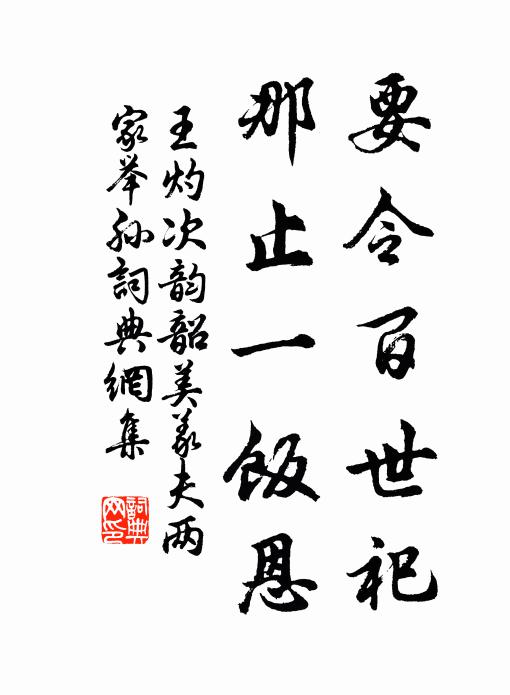 要令百世祀
那止一飯恩
王灼次韵韶美義夫两
家举孙詞典網集
詞典网印